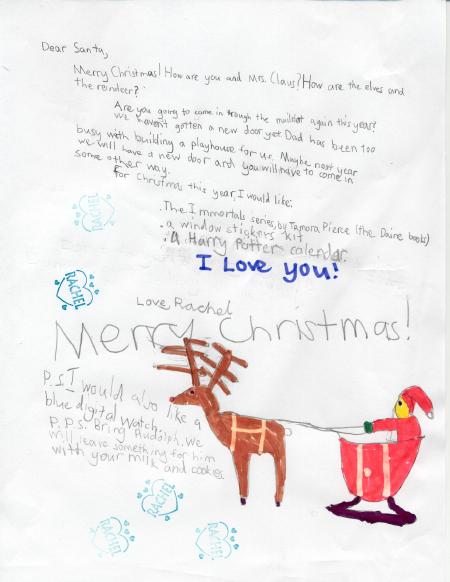 Dear Santa,
Merry Christmas! How are you and Mrs. Claus? How are the elves and
the reindeer?
Are you going to come in through the mailslot again this year?
We haven't gotten a new door yet Dad has been too
busy with building a playhouse for us. Maybe next year
we will have a new door and you will have to come in
some other way.
For Christmas this year, I would like:
RACHEL
. The Immortals series, by Tamora Pierce (the Daine books)
. a window stickers kit
. a Harry Potter calendar.
I Love you!
RACHEL
Love, Rachel
Merry Christmas!
P.S. I would also like a
blue digital watch.
P.P.S. Bring Rudolph. We
will leave something for him
with your milk and cookies.
RACHEL
RACHEL
RACHEL